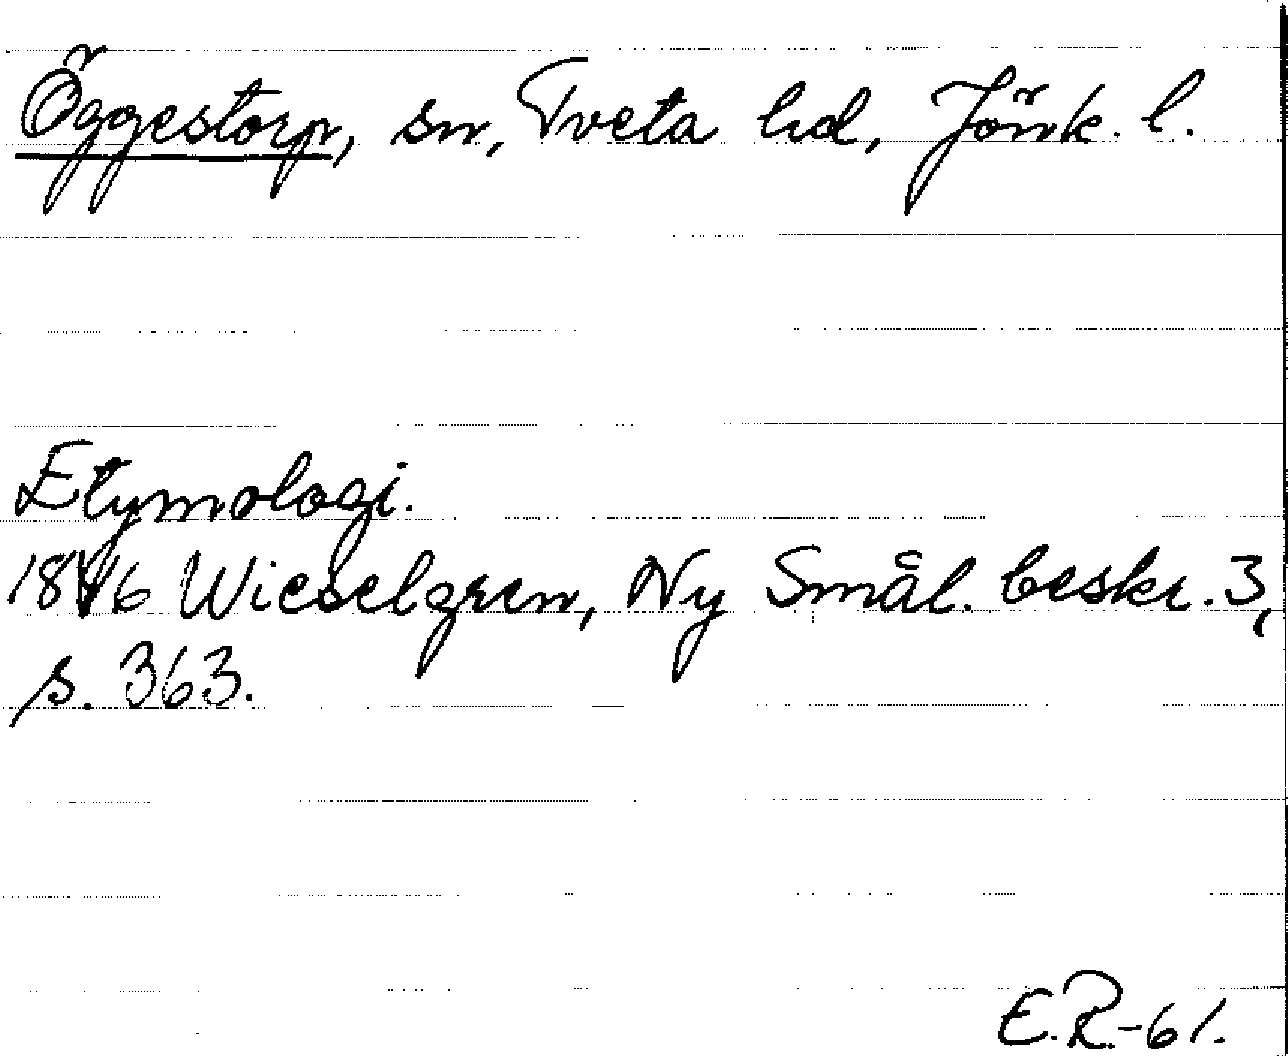 Öggestorp, sn, Tveta hd, Jönk. l.
Etymologi.
1846 Wieselgren, Ny Smål. beskr. 3,
s. 363.
E.R.-61.